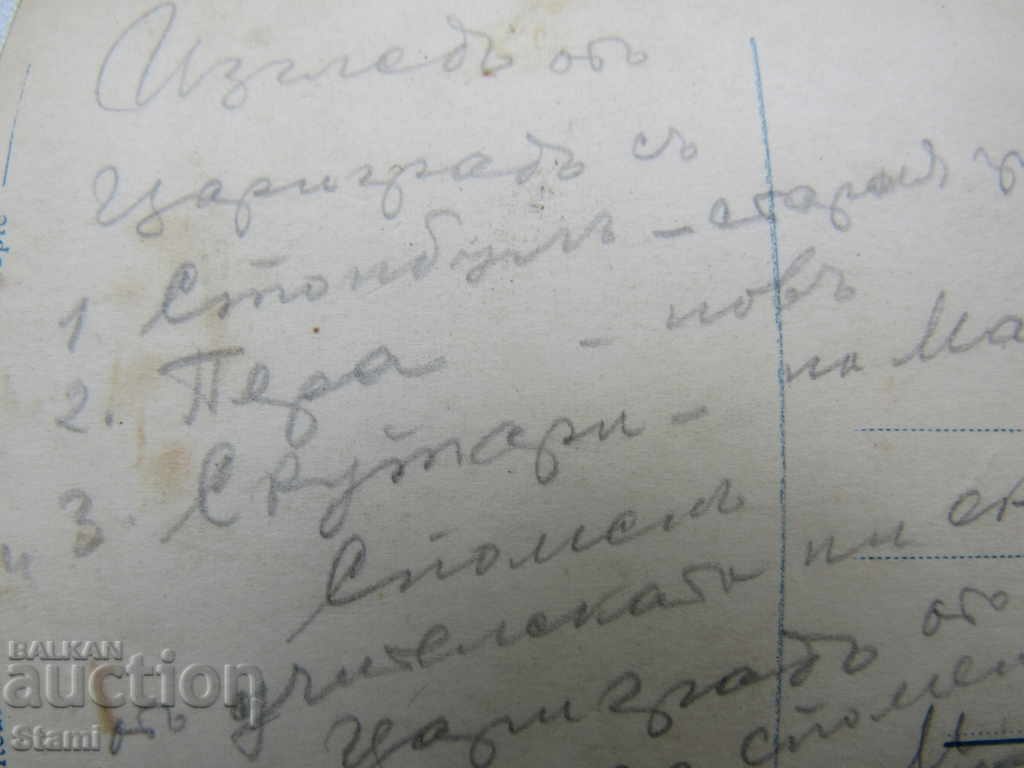 Изгледъ отъ
Цариградъ съ
1. Стонбулъ - стария
2. Пера - новъ
и 3. Скутари - на Ма
Споменъ
отъ учителската ни ек
Цариградъ отъ
спомен
BALKAN
auction
Stami